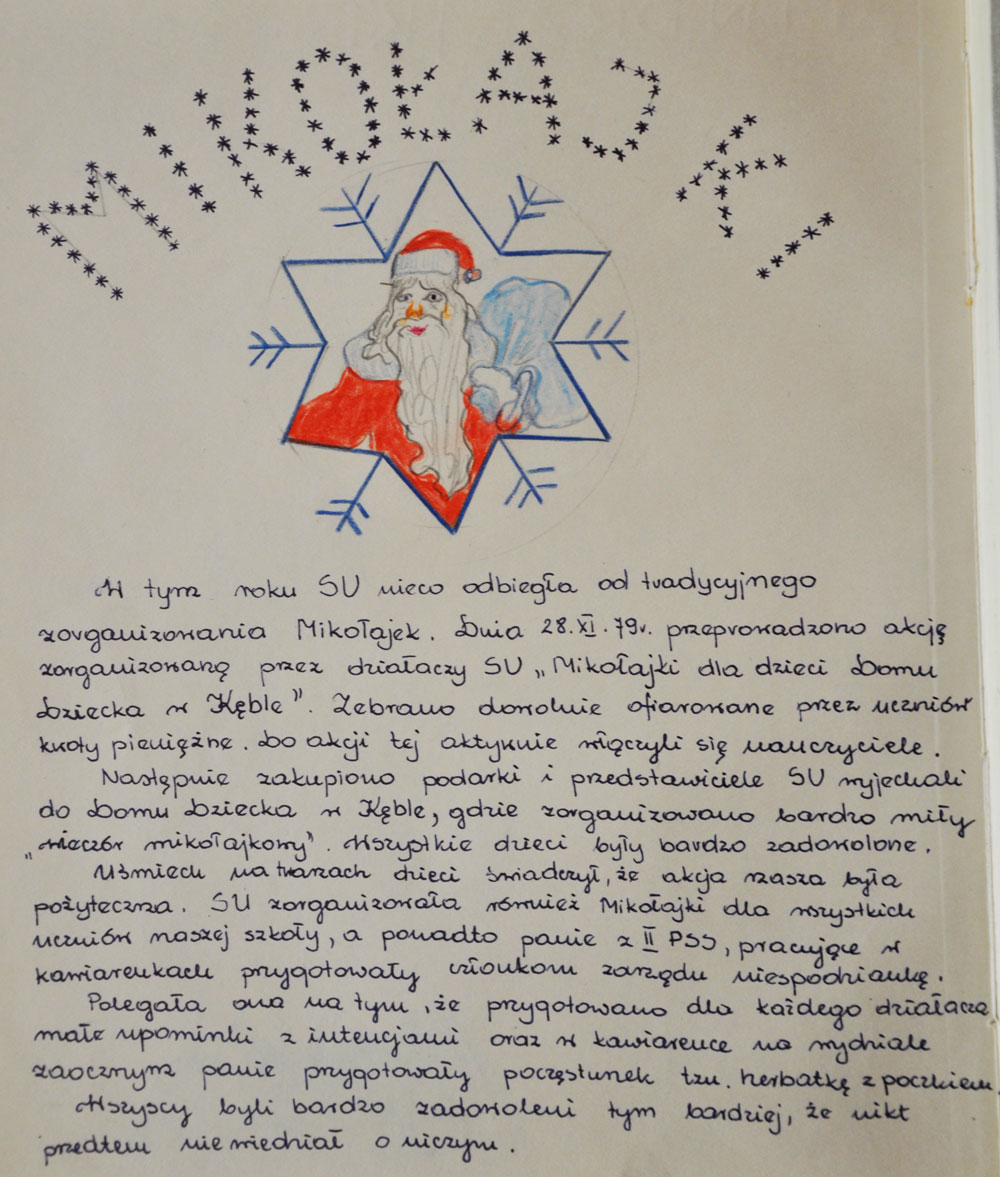 MIKOŁAJKI
W tym roku SU nieco odbiegła od tradycyjnego
zorganizowania Mikołajek. Dnia 28.XI.79r. przeprowadzono akcję
zorganizowaną przez działaczy SU „Mikołajki dla dzieci Domu
Dziecka w Kęble”. Zebrano dowolnie ofiarowane przez uczniów
kwoty pieniężne. Do akcji tej aktywnie włączyli się nauczyciele.
Następnie zakupiono podarki i przedstawiciele SU wyjechali
do Domu Dziecka w Kęble, gdzie zorganizowano bardzo miły
„wieczór mikołajkowy”. Wszystkie dzieci były bardzo zadowolone.
Uśmiech na twarzach dzieci świadczył, że akcja nasza była
pożyteczna. SU zorganizowała również Mikołajki dla wszystkich
uczniów naszej szkoły, a ponadto panie z II PSS, pracujące w
kawiarenkach przygotowały członkom zarządu niespodziankę.
Polegała ona na tym, że przygotowano dla każdego działacza
małe upominki z intencjami oraz w kawiarence na wydziale
zaocznym panie przygotowały poczęstunek tzn. herbatkę z pączkiem
Wszyscy byli bardzo zadowoleni tym bardziej, że nikt
przedtem nie wiedział o niczym.